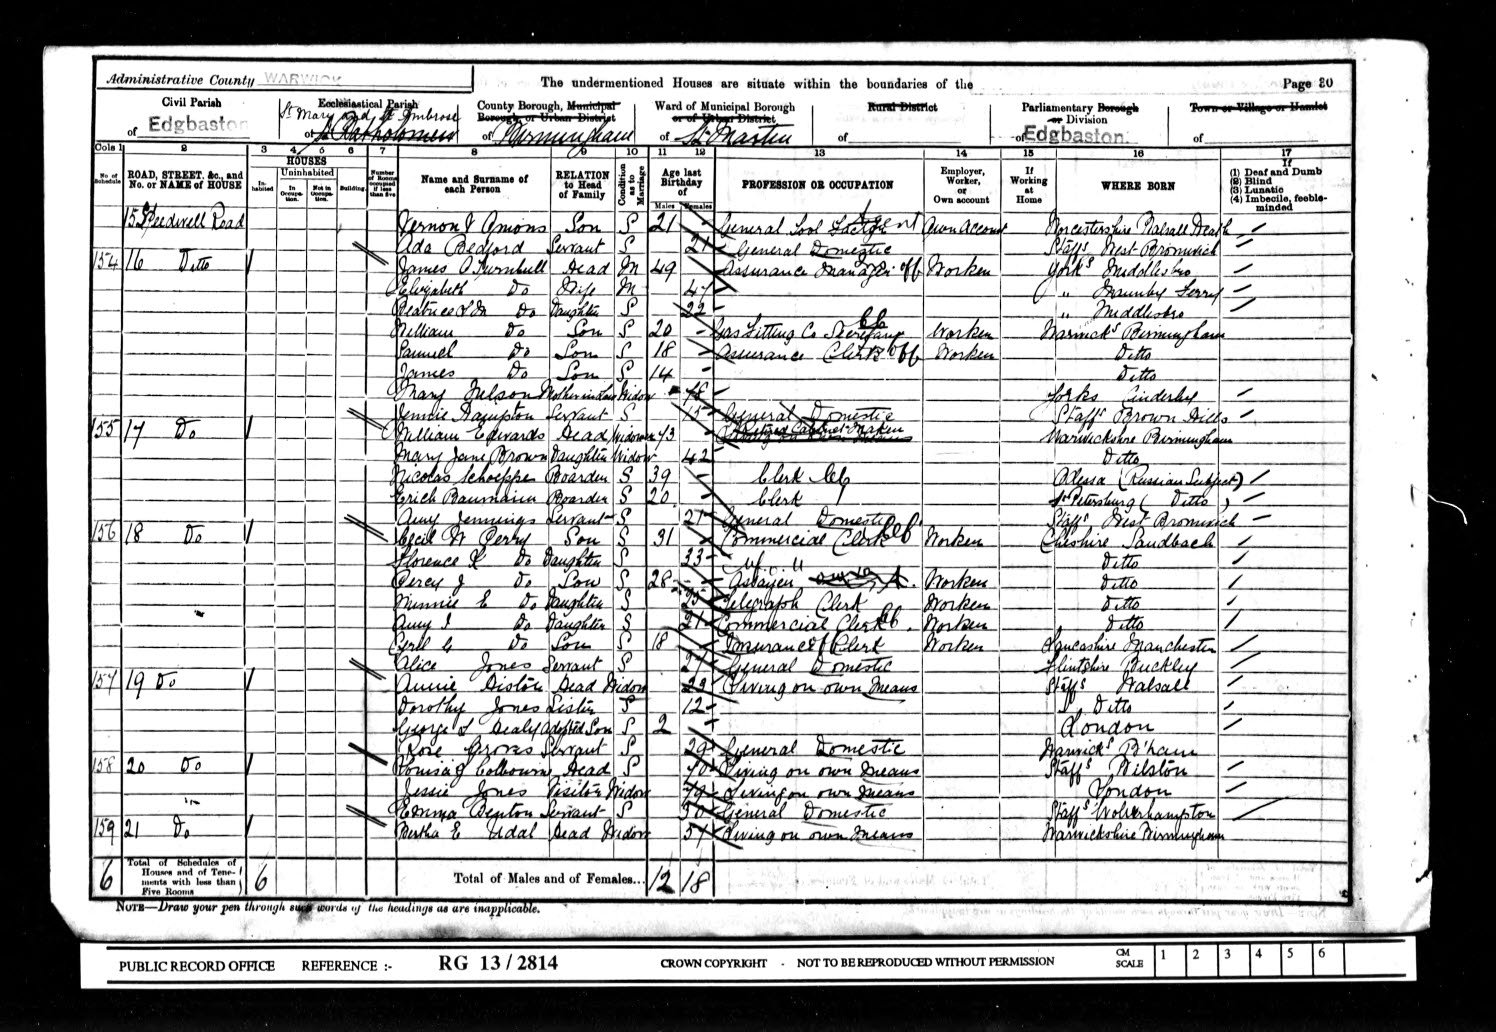 Administrative County WARWICK
The undermentioned Houses are situate within the boundaries of the
Page 30
Civil Parish
of Edgbaston
Ecclesiastical Parish
St Mary and St Ambrose
of St Bartholomew
County Borough, Municipal Borough, or Urban District
of Birmingham
Ward of Municipal Borough or of Urban District
of St Martin
Rural District
of
Parliamentary Borough or Division
of Edgbaston
Town or Village or Hamlet
of
Cols 1 2 3 4 5 6 7 8 9 10 11 12 13 14 15 16 17
No. of Schedule
ROAD, STREET, &c., and No. or NAME of HOUSE
HOUSES
Inhabited
Uninhabited
In Occupation.
Not in Occupation.
Building.
Number of Rooms occupied if less than five
Name and Surname of each Person
RELATION to Head of Family
Condition as to Marriage
Age last Birthday of
Males Females
PROFESSION OR OCCUPATION
Employer, Worker, or Own account
If Working at Home
WHERE BORN
If
(1) Deaf and Dumb
(2) Blind
(3) Lunatic
(4) Imbecile, feeble-minded
15 Speedwell Road Vernon J Amions Son S 21 General Tool Factor Agent Own Account Worcestershire Walsall Heath
Ada Bedford Servant S 21 General Domestic Staffs West Bromwich
154 16 Ditto 1 James O Turnbull Head M 49 Assurance Manager off Worker Yorks Middlesbro
Elizabeth Do Wife M 47 " Maunby Ferry
Beatrice Do Daughter S 22 " Middlesbro
William Do Son S 20 Gas Fitting Co Secretary Worker Warwicks Birmingham
Samuel Do Son S 18 Assurance Clerk off Worker Ditto
James Do Son S 14 Ditto
Mary Nelson Mother in Law Widow 78 Yorks Ainderby
Jennie Hampton Servant S 15 General Domestic Staffs Brown Hills
155 17 Do 1 William Edwards Head Widower 73 Retired Cabinet Maker Warwickshire Birmingham
Mary Jane Brown Daughter Widow 42 Ditto
Nicolas Schoeppe Boarder S 39 Clerk Odessa (Russian Subject)
Erich Baumann Boarder S 20 Clerk St Petersburg ( Ditto )
Amy Jennings Servant S 21 General Domestic Staffs West Bromwich
156 18 Do 1 Cecil W Perry Son S 31 Commercial Clerk Worker Cheshire Sandbach
Florence K Do Daughter S 33 Ditto
Percy J Do Son S 28 Assayer Worker Ditto
Minnie E Do Daughter S 25 Telegraph Clerk Worker Ditto
Amy I Do Daughter S 21 Commercial Clerk Worker Ditto
Cyril G Do Son S 18 Insurance Clerk Worker Lancashire Manchester
Alice Jones Servant S 27 General Domestic Flintshire Buckley
157 19 Do 1 Annie Sistor Head Widow 29 Living on own Means Staffs Walsall
Dorothy Jones Sister 12 Ditto
George S Healy Adopted Son S 2 London
Rose Groves Servant S 29 General Domestic Warwicks B'ham
158 20 Do 1 Louisa J Colbourne Head S 70 Living on own means Staffs Bilston
Jessie Jones Visitor Widow 79 Living on own means London
Emma Denton Servant S 50 General Domestic Staffs Wolverhampton
159 21 Do 1 Bertha E Udal Head Widow 57 Living on own Means Warwickshire Birmingham
6 Total of Schedules of Houses and of Tenements with less than Five Rooms 6 Total of Males and of Females... 12 18
NOTE—Draw your pen through such words of the headings as are inapplicable.
PUBLIC RECORD OFFICE REFERENCE :- RG 13 / 2814 CROWN COPYRIGHT - NOT TO BE REPRODUCED WITHOUT PERMISSION CM SCALE 1 2 3 4 5 6